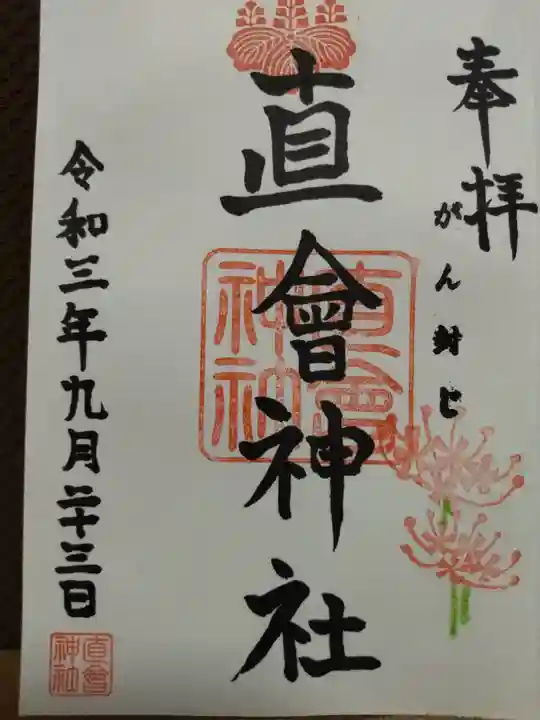 奉拝
がん封じ
直會神社
直會
神社
令和三年九月二十三日
直會
神社